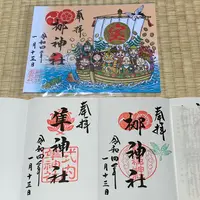 奉拝
梛神社
令和四年
一月十三日
奉拝
隼神社
令和四年
一月十三日
式内
奉拝
梛神社
令和四年
一月十三日